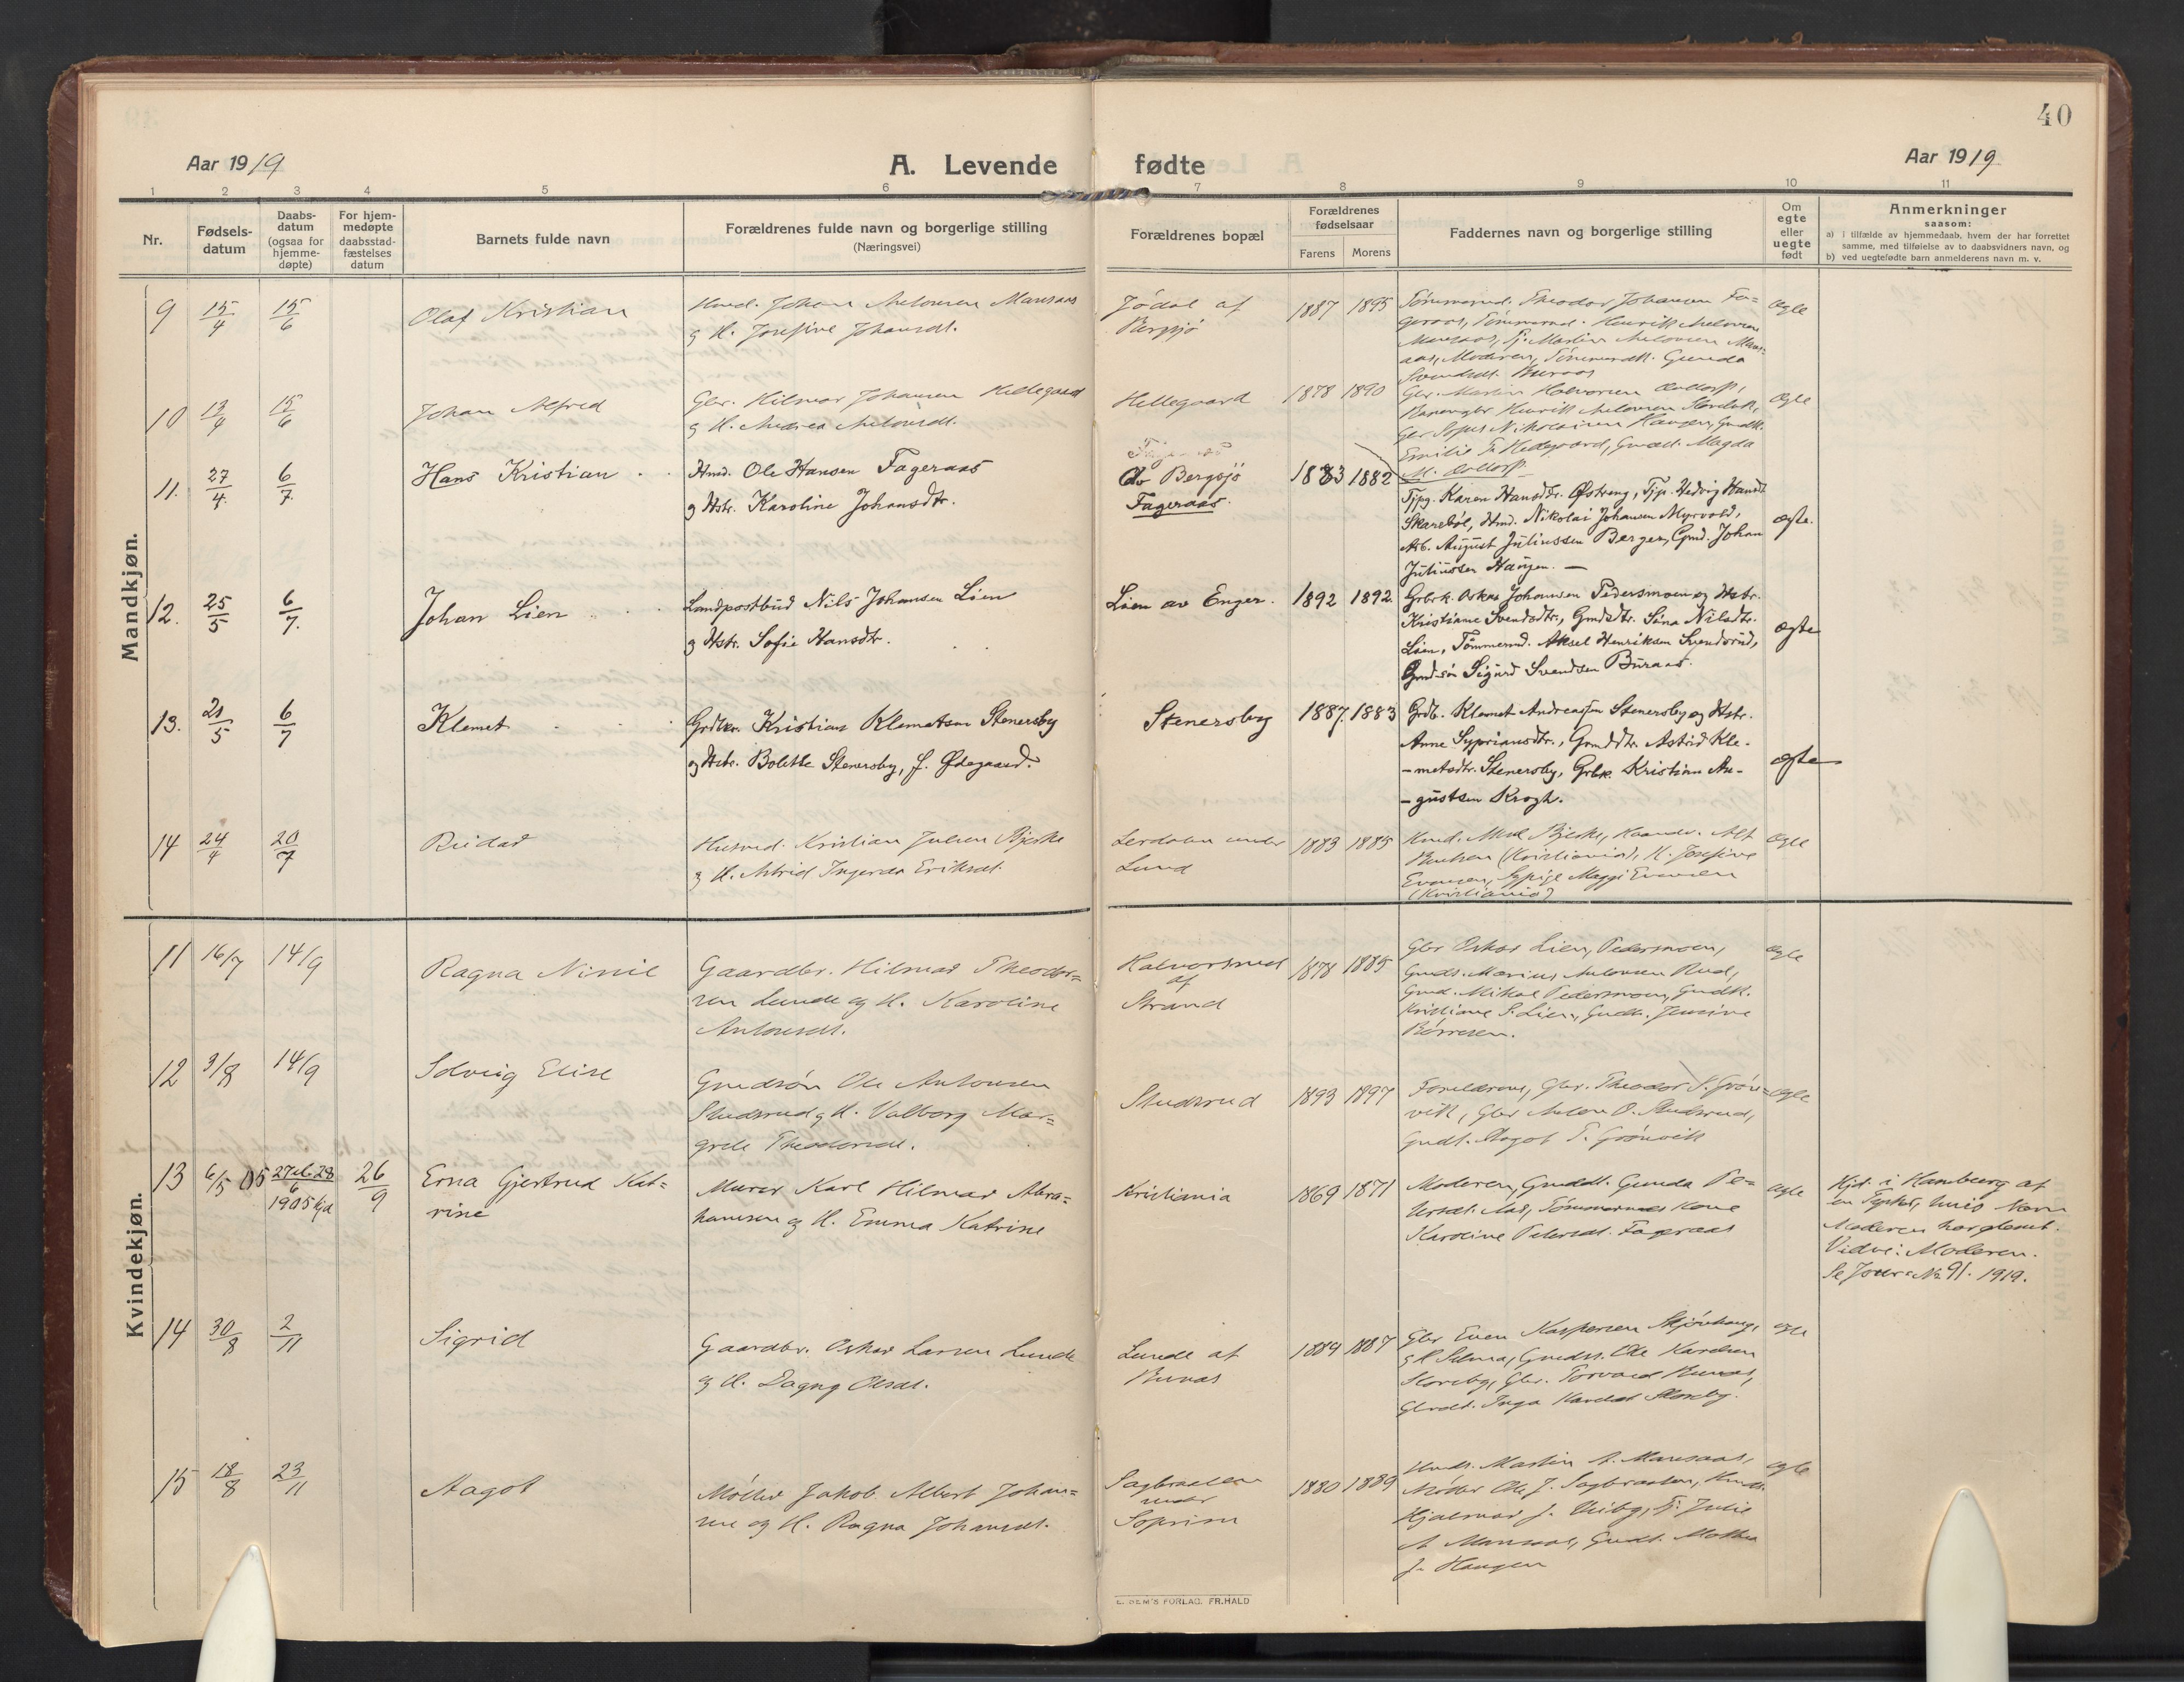 40
Aar 1919
A. Levende fødte
Aar 1919
1 2 3 4 5 6 7 8 9 10 11
Nr.
Fødsels-
datum
Daabs-
datum
(ogsaa for
hjemme-
døpte)
For hjem-
medøpte
daabsstad-
fæstelses
datum
Barnets fulde navn
Forældrenes fulde navn og borgerlige stilling
(Næringsvei)
Forældrenes bopæl
Forældrenes
fødselsaar
Farens Morens
Faddernes navn og borgerlige stilling
Om
egte
eller
uegte
født
Anmerkninger
saasom:
a) i tilfælde av hjemmedaab, hvem der har forrettet
samme, med tilføielse av to daabsvidners navn, og
b) ved uegtefødte barn anmelderens navn m. v.
Mandkjøn.
9 15/4 15/6 Olaf Kristian
Johan Antonsen Mansaas
og H. Josefine Johansdt.
Jødal af
Bergsjø
1887 1895
Tømmermd. Theodor Johansen Fa=
geraas, Tømmermd. Henrik Antonsen
Mansaas, Tj. Martin Antonsen Mans=
aas, Moderen, Gunda
Svendsdt. Buraas
Ægte
10 13/4 15/6 Johan Alfred
Gbr. Hilmar Johansen Hellegaard
og H. Andrea Antonsdt.
Hellegaard
1878 1890
Gbr. Martin Halvorsen
Henrik Antonsen
Gbr. Nikolaisen Haugen,
Emilie Magda
Ægte
11. 27/4. 6/7. Hans Kristian
Hmd. Ole Hansen Fageraas
og Hstr. Karoline Johansdtr.
av Bergsjö
Fageraas.
1883 1882
Tjpg. Karen Hansdtr. Østreng, Tjp. Hedvig Hansdt
Skarebøl, Hmd. Nikolai Johansen Myrvold,
Arb. August Juliussen Berger, Gmd. Johan
Juliussen Haugen. —
ægte.
12. 25/5 6/7. Johan Lien
Landpostbud Nils Johansen Lien
og Hstr. Sofie Hansdtr.
Lien av Enger.
1892 1892
Grbrk. Oskar Johansen Pedersmoen og Hstr.
Kristiane Svendsdtr., Gmdsdtr. Sina Nilsdtr.
Lien, Tömmermd. Aksel Henriksen Svendsrud,
Gmdsøn Sigurd Svendsen Buraas.
ægte
13. 21/5 6/7 Klemet
Grdbr. Kristian Klemetsen Stenersby
og Hstr. Bolette Stenersby, f. Ødegaard.
Stenersby
1887. 1883
Grdb. Klemet Andreassen Stenersby og Hstr.
Anne Sypriansdtr., Gmddtr. Astrid Kle-
-metsdtr. Stenersby, Grbr. Kristian Au-
-gustsen Krogh.
ægte
14 24/4 20/7 Reidar
Husmd. Kristian Julsen Bjerke
og H. Astrid Ingerda Eriksdt.
Lerdalen under
Lund
1883 1885
Bjerke, Alf
(Kristiania), H. Josefine
Evensen, Maggi Evensen
(Kristiania)
Ægte
Kvindekjøn.
11 16/7 14/9 Ragna Ninie
Gaardbr. Hilmar Theodor=
sen Lunde og H. Karoline
Antonsdt.
Halvorsrud
af
Strand
1878 1885
Gbr Oskar Lien, Pedersmoen,
Gmds. Marius Antonsen Rud,
Gmd. Mikal Pedersmoen, Gmdk.
Kristiane S. Lien, Gmdk. Jensine
Børresen.
Ægte
12 3/8 14/9 Solveig Elise
Gmdsøn Ole Antonsen
Studsrud og H. Valborg Mar=
grete Theodorsdt.
Studsrud
1893 1897
Forældrene, Gbr. Theodor S. Grøn=
vik, Gbr Anton O. Studsrud,
Gmdt. Aagot T. Grønvik
Ægte
13 6/5 05 27 el. 28/6 1905 26/9
Erna Gjertrud Kat=
rine
Murer Karl Hilmar Abra=
hamsen og H. Emma Katrine
Kristiania
1869 1871
Moderen, Gmddt. Gunda Pe=
tersdt. Aas, Tømmermds Kone
Karoline Petersdt. Fageraas
Ægte
Hjd. i Hamburg af
en Tysker, hvis Navn
Moderen har glemt.
Vidne: Moderen.
Se Jour. No 91. 1919.
14 30/8 2/11 Sigrid
Gaardbr. Oskar Larsen Lunde
og H. Dagny Olsdt.
Lunde af
Buraas
1884 1887
Gbr Even Kaspersen Skjønhaug
og H Selma, Gmds. Ole Karelsen
Skoreby, Gbr. Torvald Buraas,
Gbrdt. Inga Skoreby.
Ægte
15 18/8 23/11 Aagot
Møller Jakob Albert Johan=
sen og H. Ragna Johansdt.
Sagbraaten
under
Soprim
1880 1889
Martin A. Mansaas,
Møller Ole J. Sagbraaten,
Hjalmar J. Viiby, Tj. Julie
A. Mansaas, Gmdt. Mathea
J. Haugen
Ægte
E. SEM'S FORLAG. FR.HALD